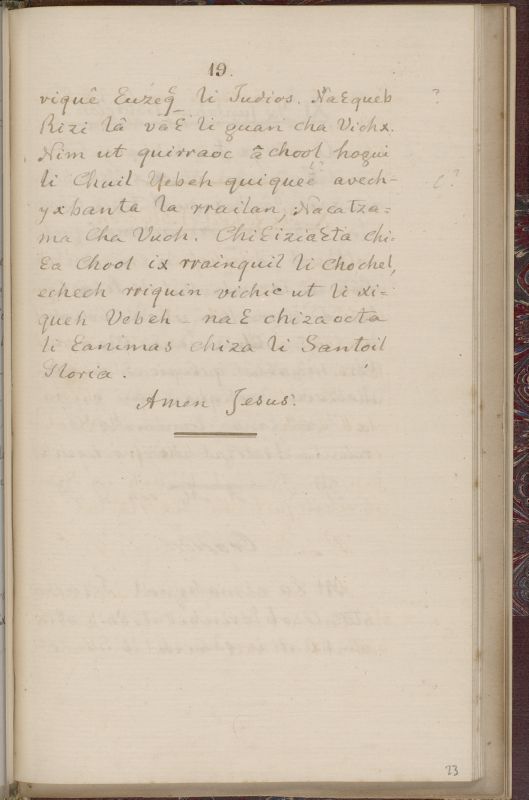 19.
viquê Euzeq̃ li Judios. NaEqueb ?
Rizi lâ vaE li guan cha Vichx.
Nim ut quirraoc ã chool hogui
li Chuil Yebeh quiqueê avech- ?
yxbanta la rrailan, Nacatza=
ma Cha Vuch. ChiEiziaEta chi-
Ea Chool ix rrainquil li Chochel,
echech rriquin vichic ut li xi=
queh Vebeh naE chiza octa
li Eanimas chiza li Santoil
Gloria.
Amen Jesus.
23